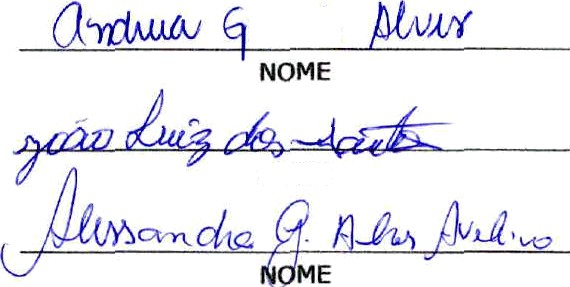 Andreia G Alves
NOME
João Luiz dos Santos
Alessandra G. Alves Avelino
NOME